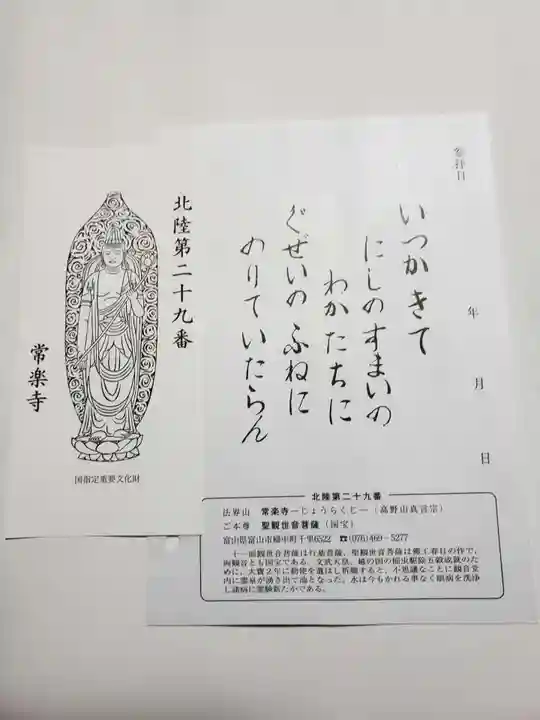 北陸第二十九番
常楽寺
国指定重要文化財
参拝日
年 月 日
いつかきて
にしのすまいの
わかたちに
ぐぜいのふねに
のりていたらん
北陸第二十九番
法界山 常楽寺―じょうらくじ―(高野山真言宗)
ご本尊 聖観世音菩薩(国宝)
富山県富山市婦中町千里6522 ☎(076)469-5277
十一面観世音菩薩は行基菩薩、聖観世音菩薩は郷工春日の作で、
両観音とも国宝である。文武天皇、越の国の稲虫駆除五穀成就のた
めに、大寶2年に勅使を遣はし祈願すると、不思議なことに観音堂
内に霊泉が湧き出て池となった。水は今もかれる事なく眼病を洗浄
し諸病に霊験新たかである。